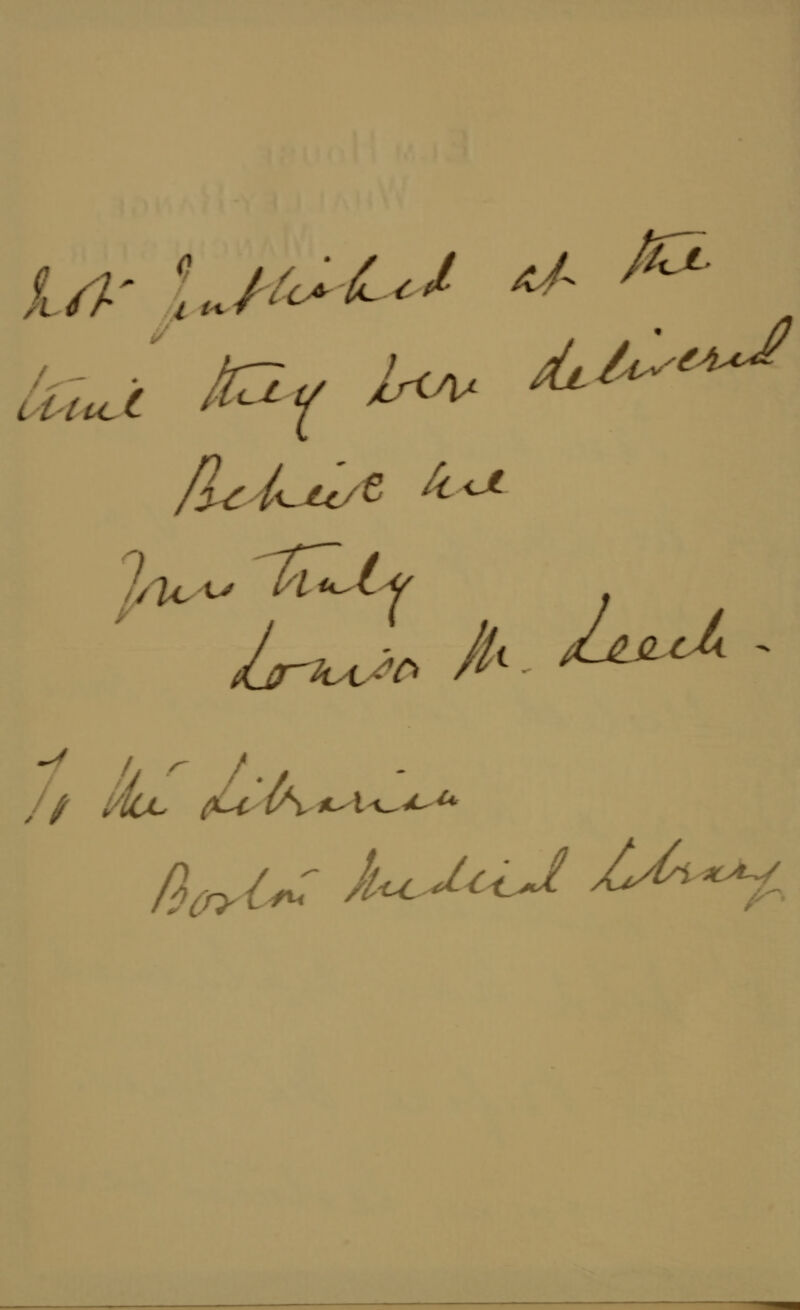 Elm House
Whalley-Range
Manchester
not published at the
time they were delivered
Believe me
Yours Truly
Louisa M. Leech -
To the Librarian
Boston Medical Library